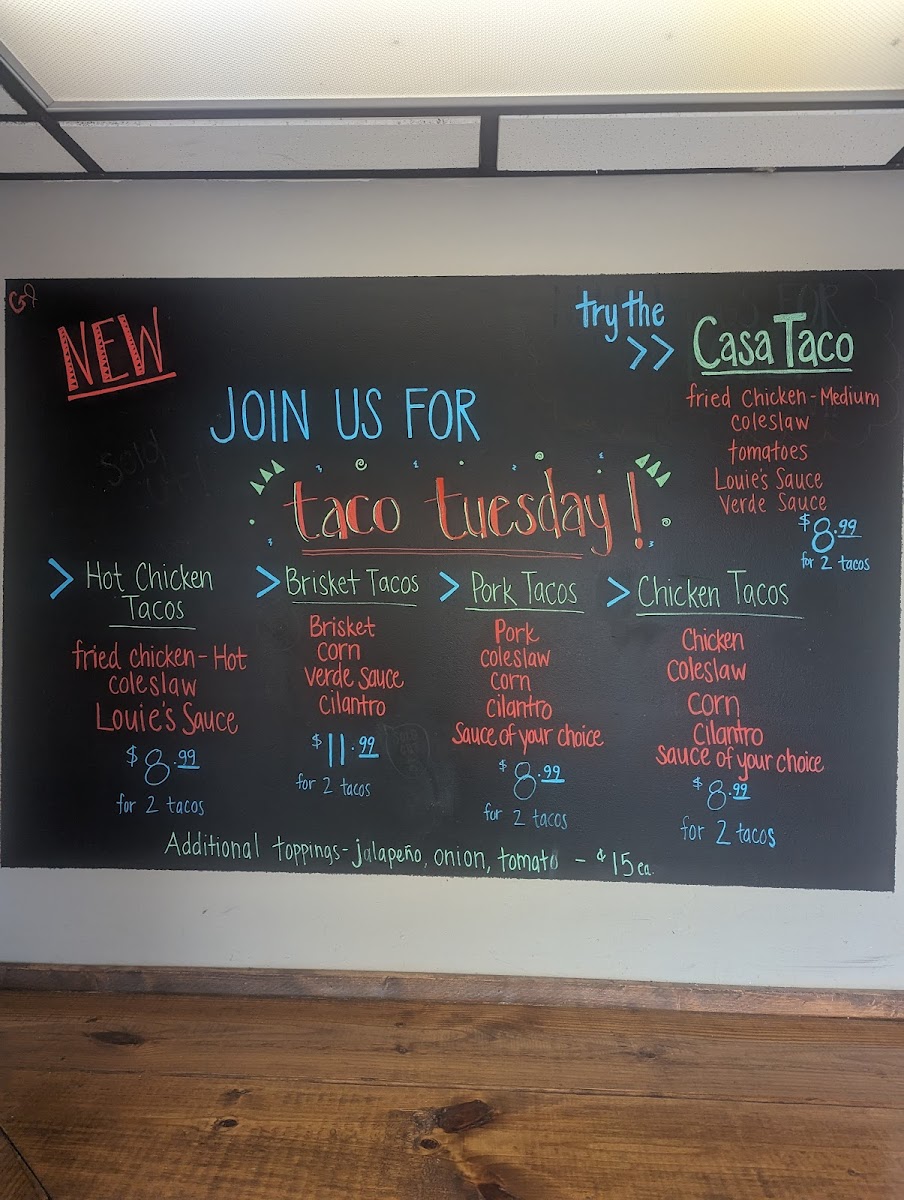 NEW
try the
>> Casa Taco
fried Chicken - Medium
coleslaw
tomatoes
Louie's Sauce
Verde Sauce
$8.99
for 2 tacos
JOIN US FOR
taco tuesday!
> Hot Chicken
Tacos
fried chicken - Hot
coleslaw
Louie's Sauce
$8.99
for 2 tacos
> Brisket Tacos
Brisket
corn
Verde Sauce
cilantro
$11.99
for 2 tacos
> Pork Tacos
Pork
coleslaw
corn
cilantro
Sauce of your choice
$8.99
for 2 tacos
> Chicken Tacos
Chicken
Coleslaw
Corn
Cilantro
Sauce of your choice
$8.99
for 2 tacos
Additional toppings - jalapeño, onion, tomato - $.15 ea.